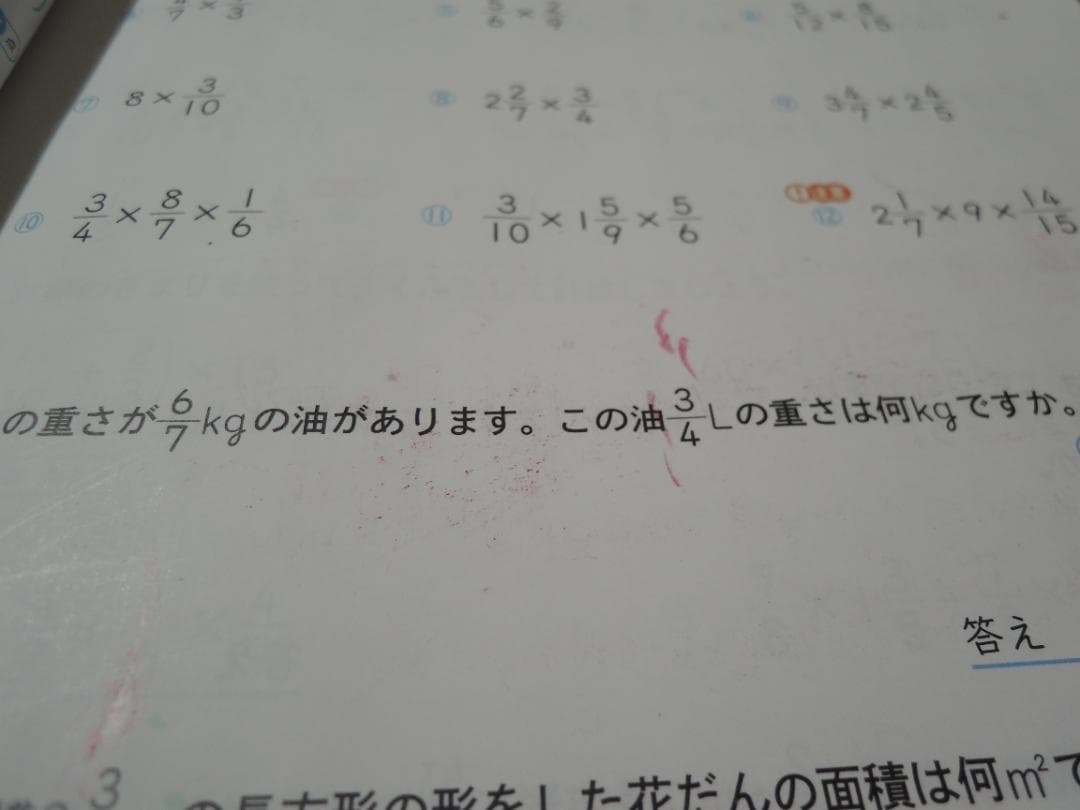 ⑦ 8 × 3/10 ⑧ 2 2/7 × 3/4 ⑨ 3 4/7 × 2 4/5
⑩ 3/4 × 8/7 × 1/6 ⑪ 3/10 × 1 5/9 × 5/6 ⑫ 2 1/7 × 9 × 14/15
の重さが6/7kgの油があります。この油3/4Lの重さは何kgですか。
答え
3 の長方形の形をした花だんの面積は何m²で